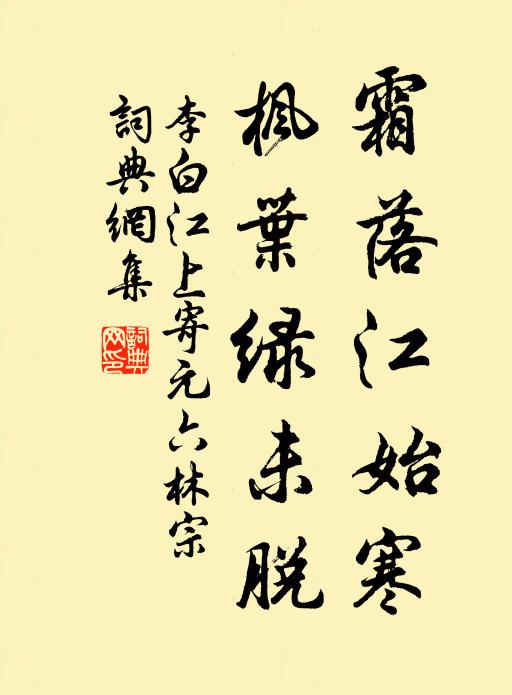 霜落江始寒
枫葉绿未脱
李白江上寄元六林宗
詞典網集
詞典网印